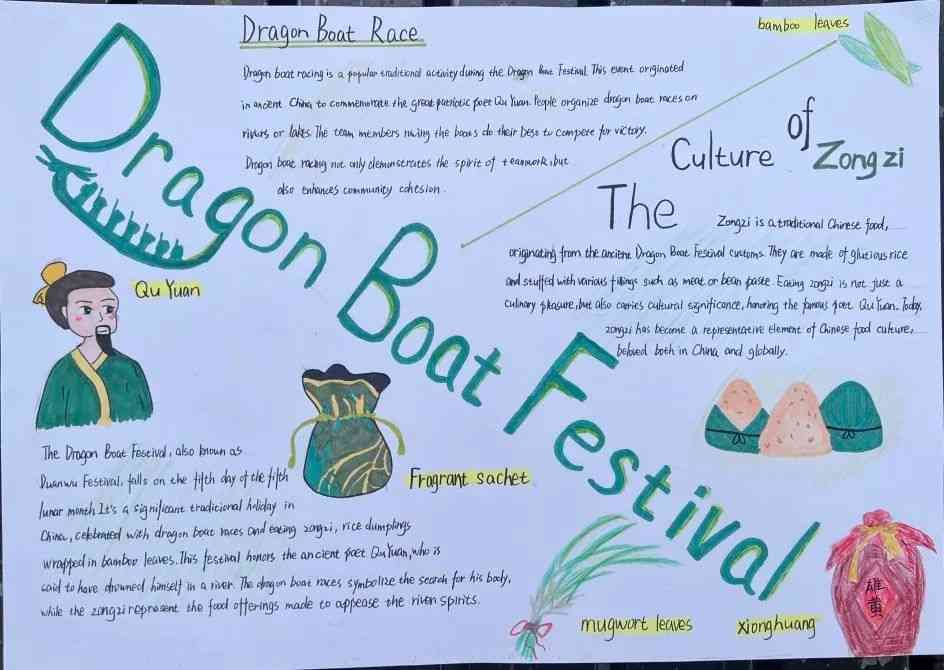 Dragon Boat Race
Dragon boat racing is a popular traditional activity during the Dragon Boat Festival. This event originated
in ancient China to commemorate the great patriotic poet Qu Yuan. People organize dragon boat races on
rivers or lakes. The team members rowing the boats do their best to compete for victory.
Dragon boat racing not only demonstrates the spirit of teamwork, but
also enhances community cohesion.
bamboo leaves
The Culture of Zongzi
Zongzi is a traditional Chinese food,
originating from the ancient Dragon Boat Festival customs. They are made of glutious rice
and stuffed with various fillings such as meat or bean paste. Eating zongzi is not just a
culinary pleasure, but also carries cultural significance, honoring the famous poet Qu Yuan. Today,
zongzi has become a representative element of Chinese food culture,
beloved both in China and globally.
Dragon Boat Festival
Qu Yuan
Fragrant sachet
The Dragon Boat Festival, also known as
Duanwu Festival, falls on the fifth day of the fifth
lunar month. It's a significant traditional holiday in
China, celebrated with dragon boat races and eating zongzi, rice dumplings
wrapped in bamboo leaves. This festival honors the ancient poet Qu Yuan, who is
said to have drowned himself in a river. The dragon boat races symbolize the search for his body,
while the zongzi represent the food offerings made to appease the river spirits.
mugwort leaves
xionghuang
雄黄